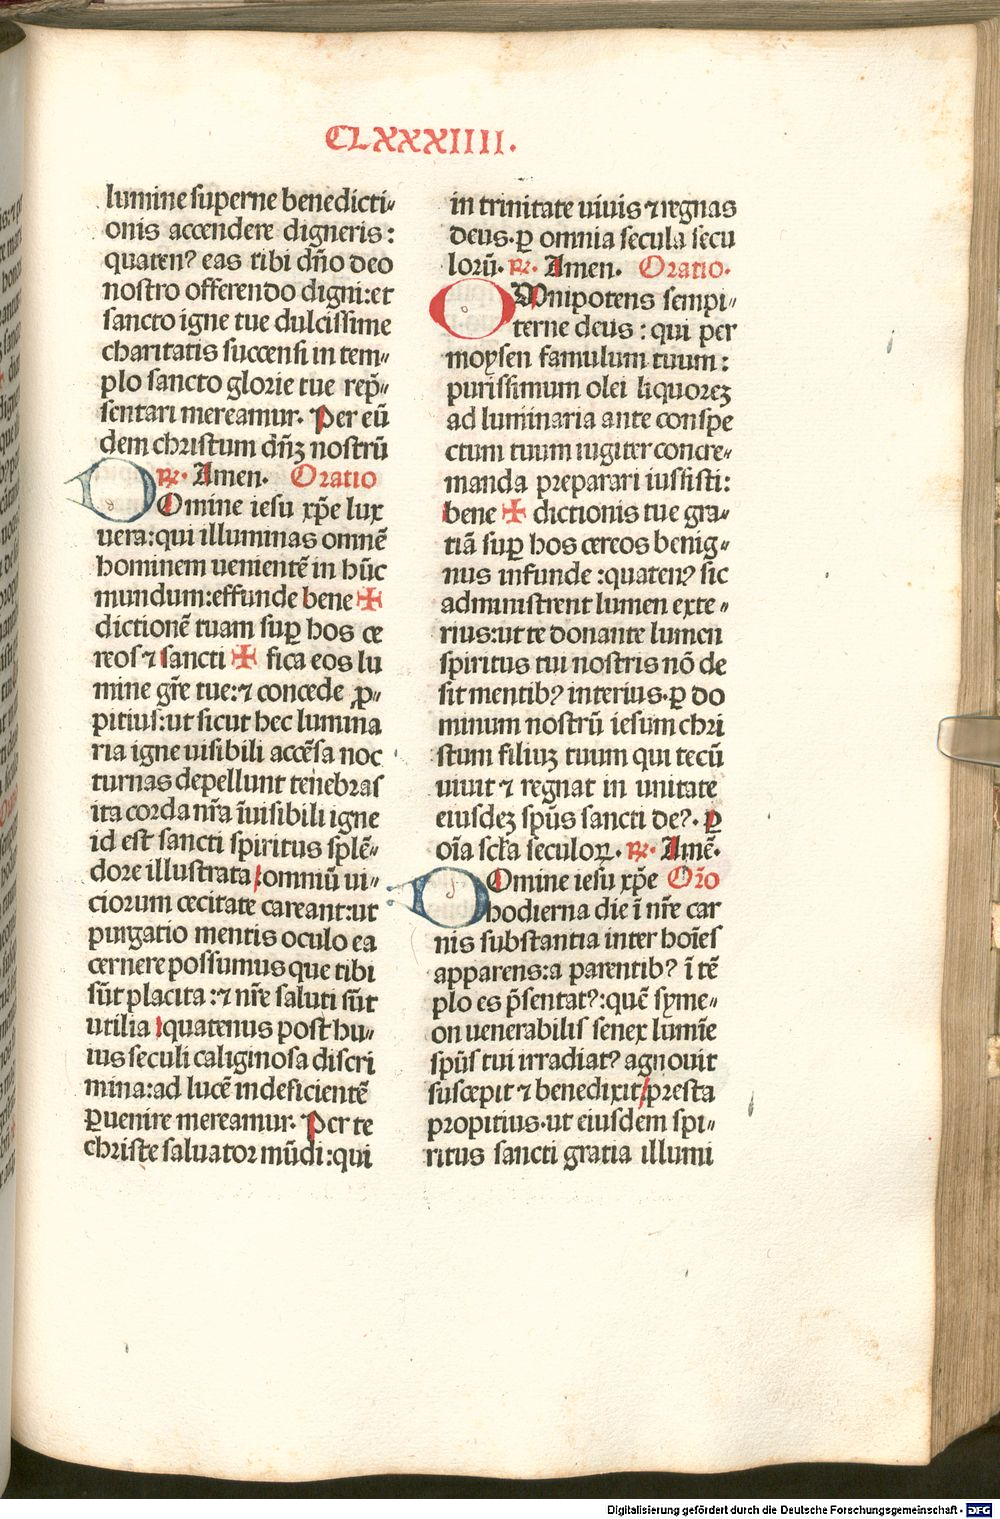 CLXXXIIII.
lumine superne benedicti⸗
onis accendere digneris:
quatenꝰ eas tibi dño deo
nostro offerendo digni:et
sancto igne tue dulcissime
charitatis succensi in tem⸗
plo sancto glorie tue rep̃⸗
sentari mereamur. Per eũ
dem christum dñꝫ nostrũ
℞. Amen. Oratio
DOmine iesu xp̃e lux
uera:qui illuminas omnẽ
hominem uenientẽ in hũc
mundum:effunde bene ✠
dictionẽ tuam suꝑ hos ce
reos ⁊ sancti ✠ fica eos lu
mine gr̃e tue:⁊ concede ꝓ⸗
pitius:ut sicut hec lumina
ria igne uisibili accẽsa noc
turnas depellunt tenebras
ita corda nr̃a ĩuisibili igne
id est sancti spiritus splẽ⸗
dore illustrata/omniũ ui⸗
ciorum cecitate careant:ut
purgatio mentis oculo ea
cernere possumus que tibi
sũt placita:⁊ nr̃e saluti sũt
utilia/quatenus post hu⸗
ius seculi caliginosa discri
mina:ad lucẽ indeficientẽ
ꝑuenire mereamur. Per te
christe saluator mũdi:qui
in trinitate uiuis ⁊ regnas
deus.ꝑ omnia secula secu
lorũ. ℞. Amen. Oratio.
OMnipotens sempi⸗
terne deus: qui per
moysen famulum tuum:
purissimum olei liquoreꝫ
ad luminaria ante conspe
ctum tuum iugiter concre⸗
manda preparari iussisti:
bene ✠ dictionis tue gra⸗
tiã suꝑ hos cereos benig⸗
nus infunde:quatenꝰ sic
administrent lumen exte⸗
rius:ut te donante lumen
spiritus tui nostris nõ de
sit mentibꝰ interius.ꝑ do
minum nostrũ iesum chri
stum filiuꝫ tuum qui tecũ
uiuit ⁊ regnat in unitate
eiusdeꝫ sp̃us sancti deꝰ. ꝑ
oĩa sc̃la seculoꝝ. ℞. Amẽ.
DOmine iesu xp̃e Or̃o
hodierna die ĩ nr̃e car
nis substantia inter hoĩes
apparens:a parentibꝰ ĩ tẽ
plo es p̃sentatꝰ:quẽ syme⸗
on uenerabilis senex lumĩe
sp̃us tui irradiatꝰ agnouit
suscepit ⁊ benedixit/presta
propitius.ut eiusdem spi⸗
ritus sancti gratia illumi
Digitalisierung gefördert durch die Deutsche Forschungsgemeinschaft - DFG